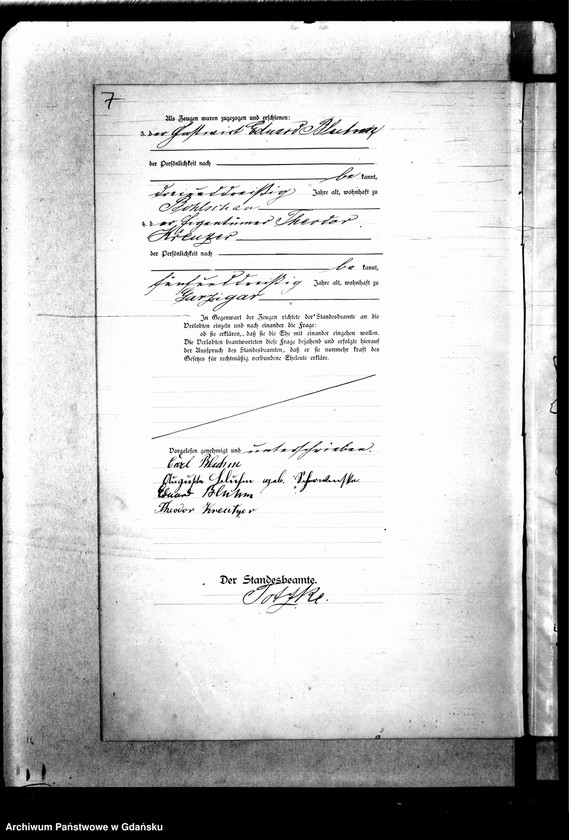 7
Als Zeugen waren zugezogen und erschienen:
3. der Gastwirt Eduard Bluhm
der Persönlichkeit nach
be kannt,
dreiunddreißig Jahre alt, wohnhaft zu
Bohlschau
4. der Eigentümer Theodor
Kreutzer
der Persönlichkeit nach
be kannt,
fünfunddreißig Jahre alt, wohnhaft zu
Garzigar
In Gegenwart der Zeugen richtete der Standesbeamte an die
Verlobten einzeln und nach einander die Frage:
ob sie erklären, daß sie die Ehe mit einander eingehen wollen.
Die Verlobten beantworteten diese Frage bejahend und erfolgte hierauf
der Ausspruch des Standesbeamten, daß er sie nunmehr kraft des
Gesetzes für rechtmäßig verbundene Eheleute erkläre.
Vorgelesen genehmigt und unterschrieben.
Carl Bluhm
Auguste Bluhm geb. Schwenske
Eduard Bluhm
Theodor Kreutzer
Der Standesbeamte.
Totzke.
Archiwum Państwowe w Gdańsku